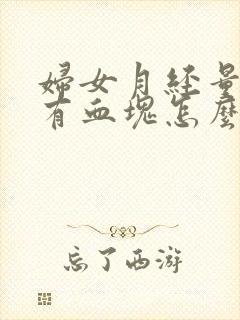 婦女月经量
有血塊怎麼
忘了西游